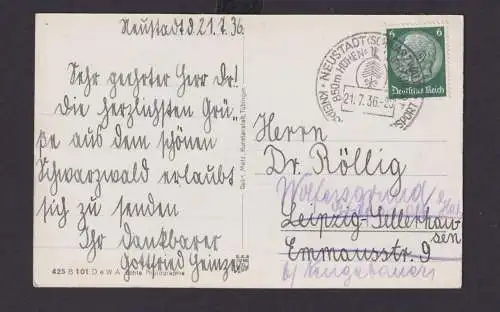 Neustadt d. 21.7.36.
Sehr geehrter Herr Dr!
Die herzlichsten Grü-
ße aus dem schönen
Schwarzwald erlaubt
sich zu senden
Ihr dankbarer
Gottfried Heinze
425 B 101 D e W A Echte Photographie
Gebr. Metz, Kunstanstalt, Tübingen
NEUSTADT (SC
850m HÖHEN
21.7.36
SPORT
6 6
Deutsches Reich
Herrn
Dr. Röllig
Leipzig-Sellerhau-
sen
Emmausstr. 9